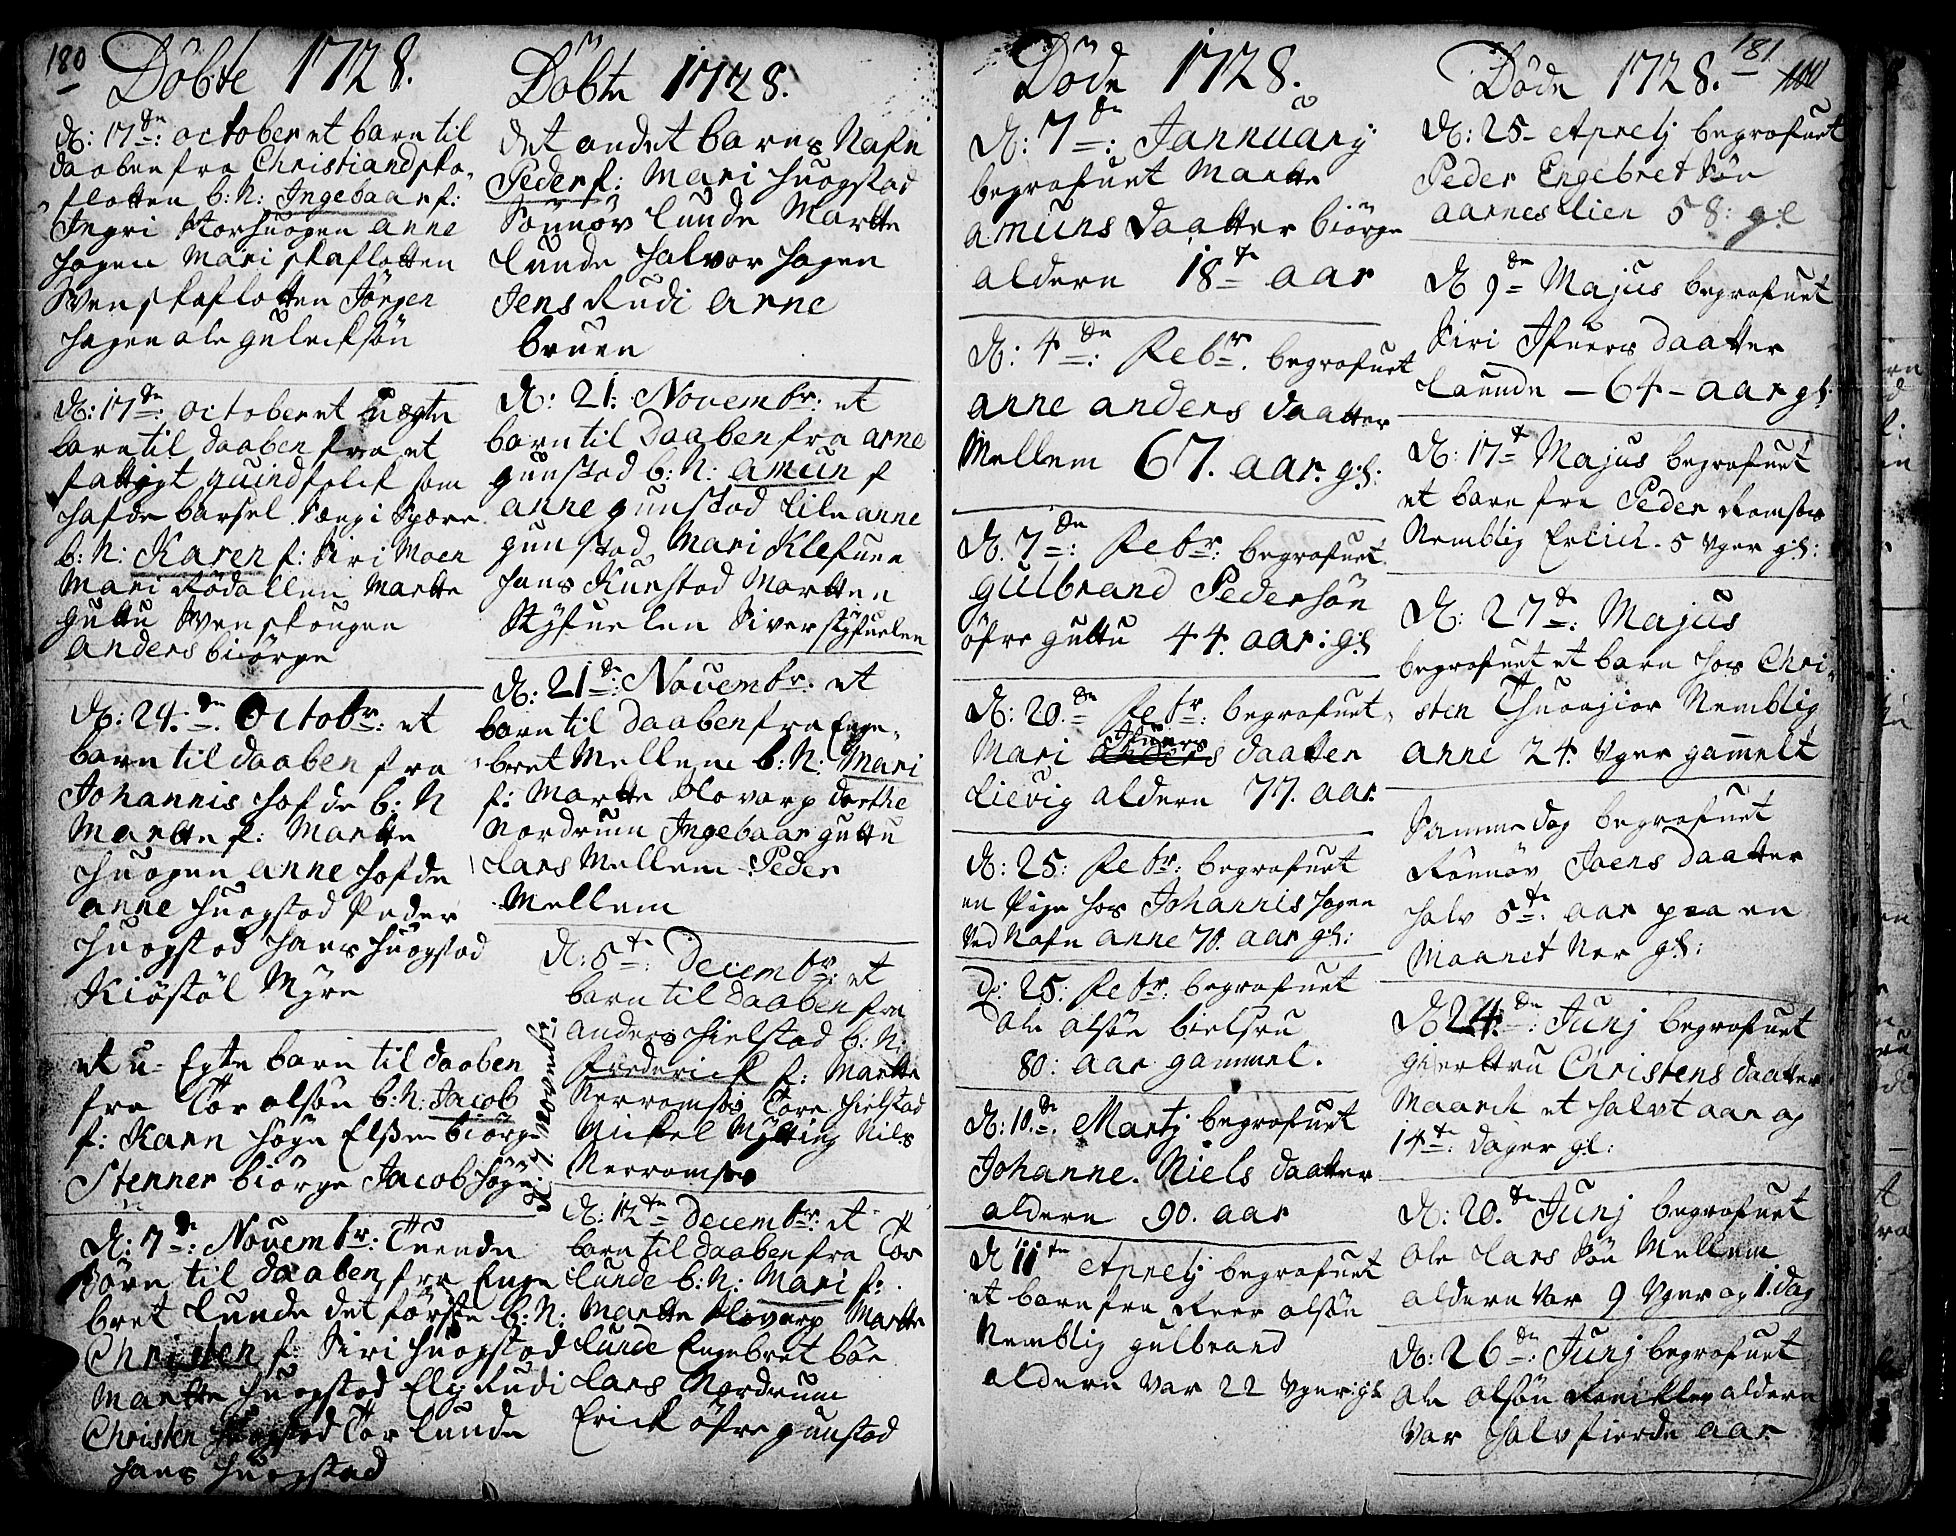 180
Döbte 1728.
D: 17de: october et barn til
daaben fra Christiand ska,
flotten b: N: Ingebaar f:
Ingri Storhuogen anne
hagen Mari skaflotten
Swen skaflotten Jörgen
hagen ole gulecksön
D: 17de: october et u-ægte
barn til daaben fra et
fattigt quindfolck som
hafde barsel Sæng i Spore
b: N: Karen f: Siri Moen
Mari Rödallen Martte
guttu Swen skougen
anders biörge
D: 24.de. Octobr: et
barn til daaben fra
Johannis hofde b: N
Martte f: Martte
huogen anne hofde
anne huogstad Peder
huogstad hans huogstad
Kiöstöl Myre
et u-Egte barn til daaben
fra Tor olsön b: N: Jacob
f: Karn höge Elssen biörge
Stenner biörge Jacob höge
D: 7 Novembr:
D: 7de: Novembr: Tuende
börn til daaben fra Enge
bret Lunde det förste b: N:
Christen f: Siri huogstad
Martte huogstad Elj Rudi
Christen huogstad Tor Lunde
hans huogstad
Döbte 1728.
det andet barns Nafn
Peder f: Mari huogstad
Sönnöv Lunde Martte
Lunde halvor hagen
Jens Rudi arne
bruen
D: 21: Novembr: et
barn til daaben fra arne
gunstad b: N: amun f
anne gunstad Lile anne
gunstad Mari Klefuen
hans Kunstad Morten
Skyfuelen Siver skyfuelen
D: 21de: Novembr: et
barn til daaben fra Enge,
bret Mellem b: N: Mari
f: Martte Plovarp dorthe
Nordrum Ingebaar guttu
Lars Mellem Peder
Mellem
D: 5te: Decembr: et
barn til daaben fra
anders hielstad b: N:
Frederick f: Martte
Nerromsos Tore hielstad
Mickel Mytting Nils
Nerromsos
D: 12te Decembr: et
barn til daaben fra Tor
Lunde b: N: Mari f:
Martte Plovarp Martte
Lunde Engebret böe
Lars Nordrum
Erick öfre gunstad
Döde 1728.
D: 7de: Jannuarij
begrafuet Martte
amuns daatter biörge
alderen 18te aar
D: 4de: Febr. begrafuet
anne anders daatter
Mellem 67. aar. gl:
D. 7de: Febr: begrafuet
gulbrand Pedersön
öfre guttu 44. aar: gl
D: 20.de Febr: begrafuet
Ifuers
Mari anders daatter
Lievig aldern 77. aar.
D: 25: Febr: begrafuet
en Pige hos Johannis hagen
Ved Nafn anne 70. aar gl:
D: 25: Febr: begrafuet
ole olsön bielsru
80: aar gammel.
D: 10.de. Martj begrafuet
Johanne. Niels daatter
aldern 90. aar
D 11te Aprelj begrafuet
et barn fra Reer olsön
Nemblig gulbrand
aldern var 22 Vger gl
181
Döde 1728.
D: 25 Aprelj begrafuet
Peder Engebret Sön
aarneslien 58: gl
D 9de Majus begrafuet
Siri Ifuers daatter
Launde - 64 - aar gl:
D: 17te Majus begrafuet
et barn fra Peder Romsos
Nemblig Erick 5 vger gl:
D: 27de: Majus
begrafuet et barn hos Chri,
sten Nemblig
anne 24. Vger gammelt
Samme dag begrafuet
Rönnöv Joens daatter
halv 5te: aar paa en
Maanet Nor gl:
D 24.de: Junj begrafuet
gierttru Christens daatter
Maarck et halvt aar og
14te: dager gl:
D: 20.de Junj begrafuet
ole Lars Sön Mellem
aldern Var 9 Vger og 1. dag
D: 26de: Junj begrafuet
ole olsön aldern
Var halv fierde aar